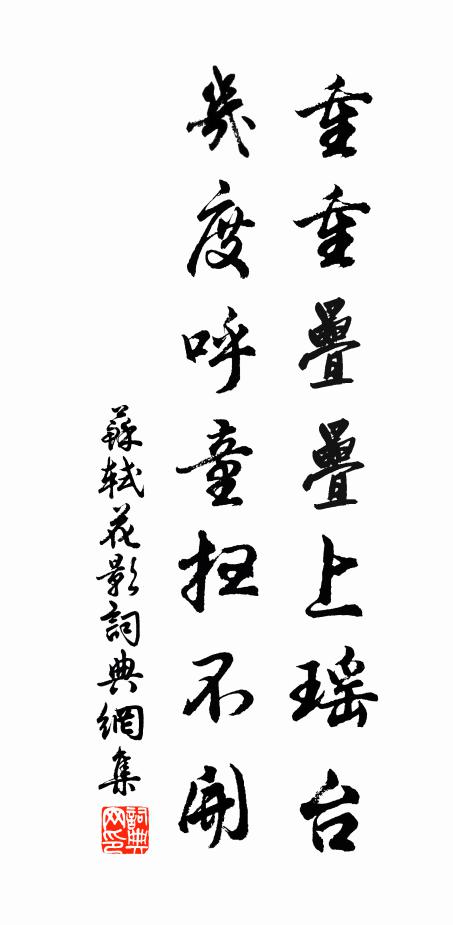 重重疊疊上瑶台
幾度呼童扫不開
蘇軾花影詞典網集
詞典网印